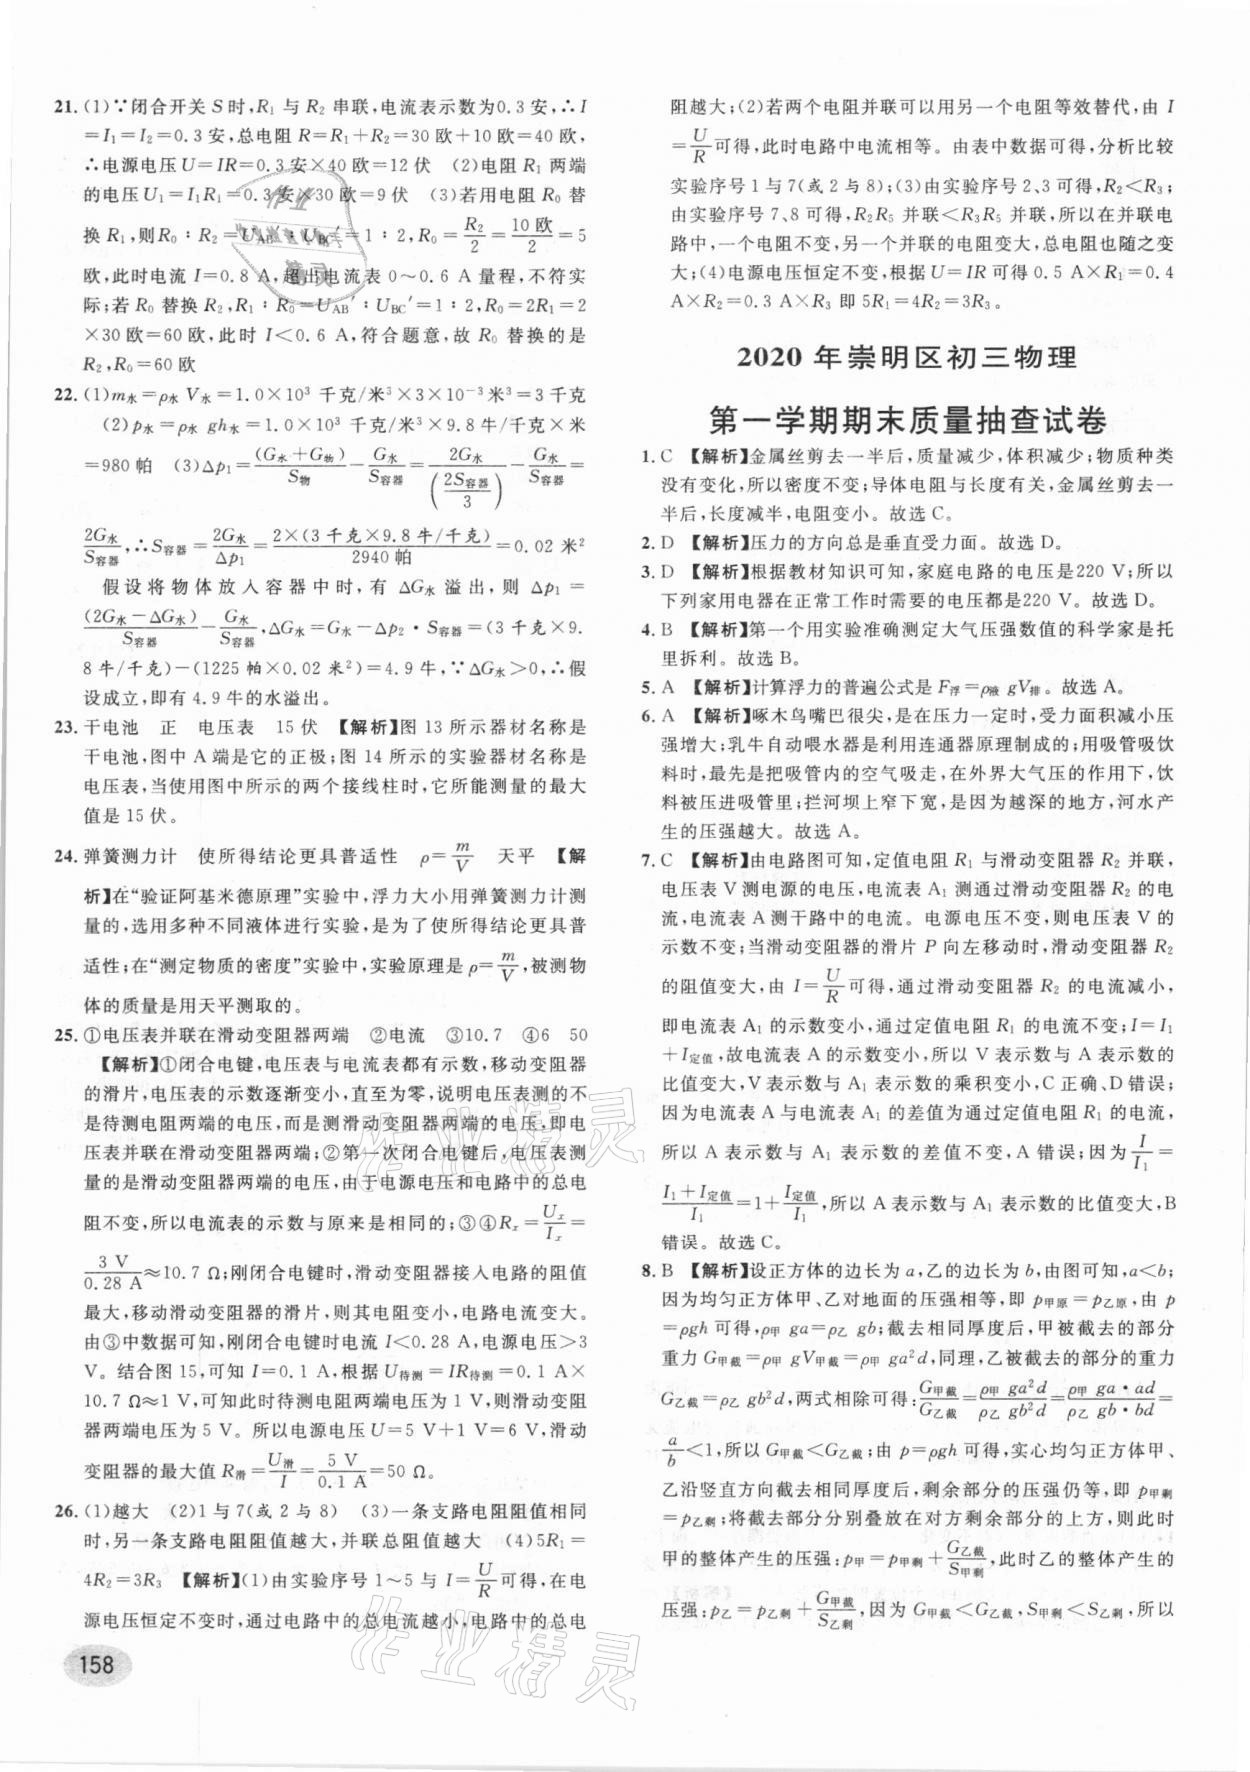 21. (1)∵闭合开关 S 时,R₁ 与 R₂ 串联,电流表示数为0.3安,∴I
=I₁=I₂=0.3 安,总电阻 R=R₁+R₂=30 欧+10 欧=40 欧,
∴电源电压U=IR=0.3安×40欧=12伏 (2)电阻 R₁ 两端
的电压U₁=I₁R₁=0.3安×30欧=9伏 (3)若用电阻 R₀ 替
换 R₁,则R₀∶R₂=U_AB′∶U_BC′=1∶2,R₀=R₂/2=10欧/2=5
欧,此时电流 I=0.8 A,超出电流表 0~0.6 A量程,不符实
际;若 R₀ 替换 R₂,R₁∶R₀=U_AB′∶U_BC′=1∶2,R₀=2R₁=2
×30欧=60欧,此时 I<0.6 A,符合题意,故 R₀ 替换的是
R₂,R₀=60欧
22. (1)m水=ρ水 V水=1.0×10³ 千克/米³×3×10⁻³米³=3千克
(2)p水=ρ水 gh水=1.0×10³ 千克/米³×9.8牛/千克×米
=980帕 (3)Δp₁=(G水+G物)/S物−G水/S容器=2G水/(2S容器/3)−G水/S容器=
2G水/S容器,∴S容器=2G水/Δp₁=2×(3千克×9.8牛/千克)/2940帕=0.02米²
假设将物体放入容器中时,有 ΔG水 溢出,则 Δp₁=
(2G水−ΔG水)/S容器−G水/S容器,ΔG水=G水−Δp₂·S容器=(3千克×9.
8牛/千克)−(1225帕×0.02米²)=4.9牛,∵ΔG水>0,∴假
设成立,即有4.9牛的水溢出。
23. 干电池 正 电压表 15伏 【解析】图13所示器材名称是
干电池,图中 A 端是它的正极;图 14 所示的实验器材名称是
电压表,当使用图中所示的两个接线柱时,它所能测量的最大
值是15伏。
24. 弹簧测力计 使所得结论更具普适性 ρ=m/V 天平 【解
析】在“验证阿基米德原理”实验中,浮力大小用弹簧测力计测
量的,选用多种不同液体进行实验,是为了使所得结论更具普
适性;在“测定物质的密度”实验中,实验原理是ρ=m/V,被测物
体的质量是用天平测取的。
25. ①电压表并联在滑动变阻器两端 ②电流 ③10.7 ④6 50
【解析】①闭合电键,电压表与电流表都有示数,移动变阻器
的滑片,电压表的示数逐渐变小,直至为零,说明电压表测的不
是待测电阻两端的电压,而是测滑动变阻器两端的电压,即电
压表并联在滑动变阻器两端;②第一次闭合电键后,电压表测
量的是滑动变阻器两端的电压,由于电源电压和电路中的总电
阻不变,所以电流表的示数与原来是相同的;③④Rₓ=Uₓ/Iₓ=
3 V/0.28 A≈10.7 Ω;刚闭合电键时,滑动变阻器接入电路的阻值
最大,移动滑动变阻器的滑片,则其电阻变小,电路电流变大。
由③中数据可知,刚闭合电键时电流 I<0.28 A,电源电压>3
V。结合图 15,可知 I=0.1 A,根据U待测=IR待测=0.1 A×
10.7 Ω≈1 V,可知此时待测电阻两端电压为1 V,则滑动变阻
器两端电压为 5 V。所以电源电压U=5 V+1 V=6 V,滑动
变阻器的最大值 R滑=U滑/I=5 V/0.1 A=50 Ω。
26. (1)越大 (2)1与7(或2与8) (3)一条支路电阻阻值相同
时,另一条支路电阻阻值越大,并联总阻值越大 (4)5R₁=
4R₂=3R₃ 【解析】(1)由实验序号 1~5 与 I=U/R可得,在电
源电压恒定不变时,通过电路中的总电流越小,电路中的总电
158
阻越大;(2)若两个电阻并联可以用另一个电阻等效替代,由 I
=U/R可得,此时电路中电流相等。由表中数据可得,分析比较
实验序号1与7(或2与8);(3)由实验序号2、3可得,R₂<R₃;
由实验序号 7、8 可得,R₂R₅ 并联<R₃R₅ 并联,所以在并联电
路中,一个电阻不变,另一个并联的电阻变大,总电阻也随之变
大;(4)电源电压恒定不变,根据U=IR可得0.5 A×R₁=0.4
A×R₂=0.3 A×R₃ 即5R₁=4R₂=3R₃。
2020年崇明区初三物理
第一学期期末质量抽查试卷
1. C 【解析】金属丝剪去一半后,质量减少,体积减少;物质种类
没有变化,所以密度不变;导体电阻与长度有关,金属丝剪去一
半后,长度减半,电阻变小。故选C。
2. D 【解析】压力的方向总是垂直受力面。故选D。
3. D 【解析】根据教材知识可知,家庭电路的电压是220 V;所以
下列家用电器在正常工作时需要的电压都是220 V。故选D。
4. B 【解析】第一个用实验准确测定大气压强数值的科学家是托
里拆利。故选B。
5. A 【解析】计算浮力的普遍公式是F浮=ρ液 gV排。故选A。
6. A 【解析】啄木鸟嘴巴很尖,是在压力一定时,受力面积减小压
强增大;乳牛自动喂水器是利用连通器原理制成的;用吸管吸饮
料时,最先是把吸管内的空气吸走,在外界大气压的作用下,饮
料被压进吸管里;拦河坝上窄下宽,是因为越深的地方,河水产
生的压强越大。故选A。
7. C 【解析】由电路图可知,定值电阻 R₁ 与滑动变阻器 R₂ 并联,
电压表 V 测电源的电压,电流表 A₁ 测通过滑动变阻器 R₂ 的电
流,电流表 A 测干路中的电流。电源电压不变,则电压表 V 的
示数不变;当滑动变阻器的滑片 P 向左移动时,滑动变阻器 R₂
的阻值变大,由 I=U/R可得,通过滑动变阻器 R₂ 的电流减小,
即电流表 A₁ 的示数变小,通过定值电阻 R₁ 的电流不变;I=I₁
+I定值,故电流表 A 的示数变小,所以 V 表示数与 A 表示数的
比值变大,V表示数与 A₁ 表示数的乘积变小,C正确、D错误;
因为电流表 A 与电流表 A₁ 的差值为通过定值电阻 R₁ 的电流,
所以 A 表示数与 A₁ 表示数的差值不变,A 错误;因为I/I₁=
(I₁+I定值)/I₁=1+I定值/I₁,所以 A 表示数与 A₁ 表示数的比值变大,B
错误。故选C。
8. B 【解析】设正方体的边长为a,乙的边长为b,由图可知,a<b;
因为均匀正方体甲、乙对地面的压强相等,即 p甲原=p乙原,由 p
=ρgh可得,ρ甲 ga=ρ乙 gb;截去相同厚度后,甲被截去的部分
重力G甲截=ρ甲 gV甲截=ρ甲 ga²d,同理,乙被截去的部分的重力
G乙截=ρ乙 gb²d,两式相除可得:G甲截/G乙截=ρ甲 ga²d/ρ乙 gb²d=ρ甲 ga·ad/ρ乙 gb·bd=
a/b<1,所以G甲截<G乙截;由 p=ρgh可得,实心均匀正方体甲、
乙沿竖直方向截去相同厚度后,剩余部分的压强仍等,即 p甲剩
=p乙剩;将截去部分分别叠放在对方剩余部分的上方,则此时
甲的整体产生的压强:p甲=p甲剩+G乙截/S甲剩,此时乙的整体产生的
压强:p乙=p乙剩+G甲截/S乙剩,因为 G甲截<G乙截,S甲剩<S乙剩,所以